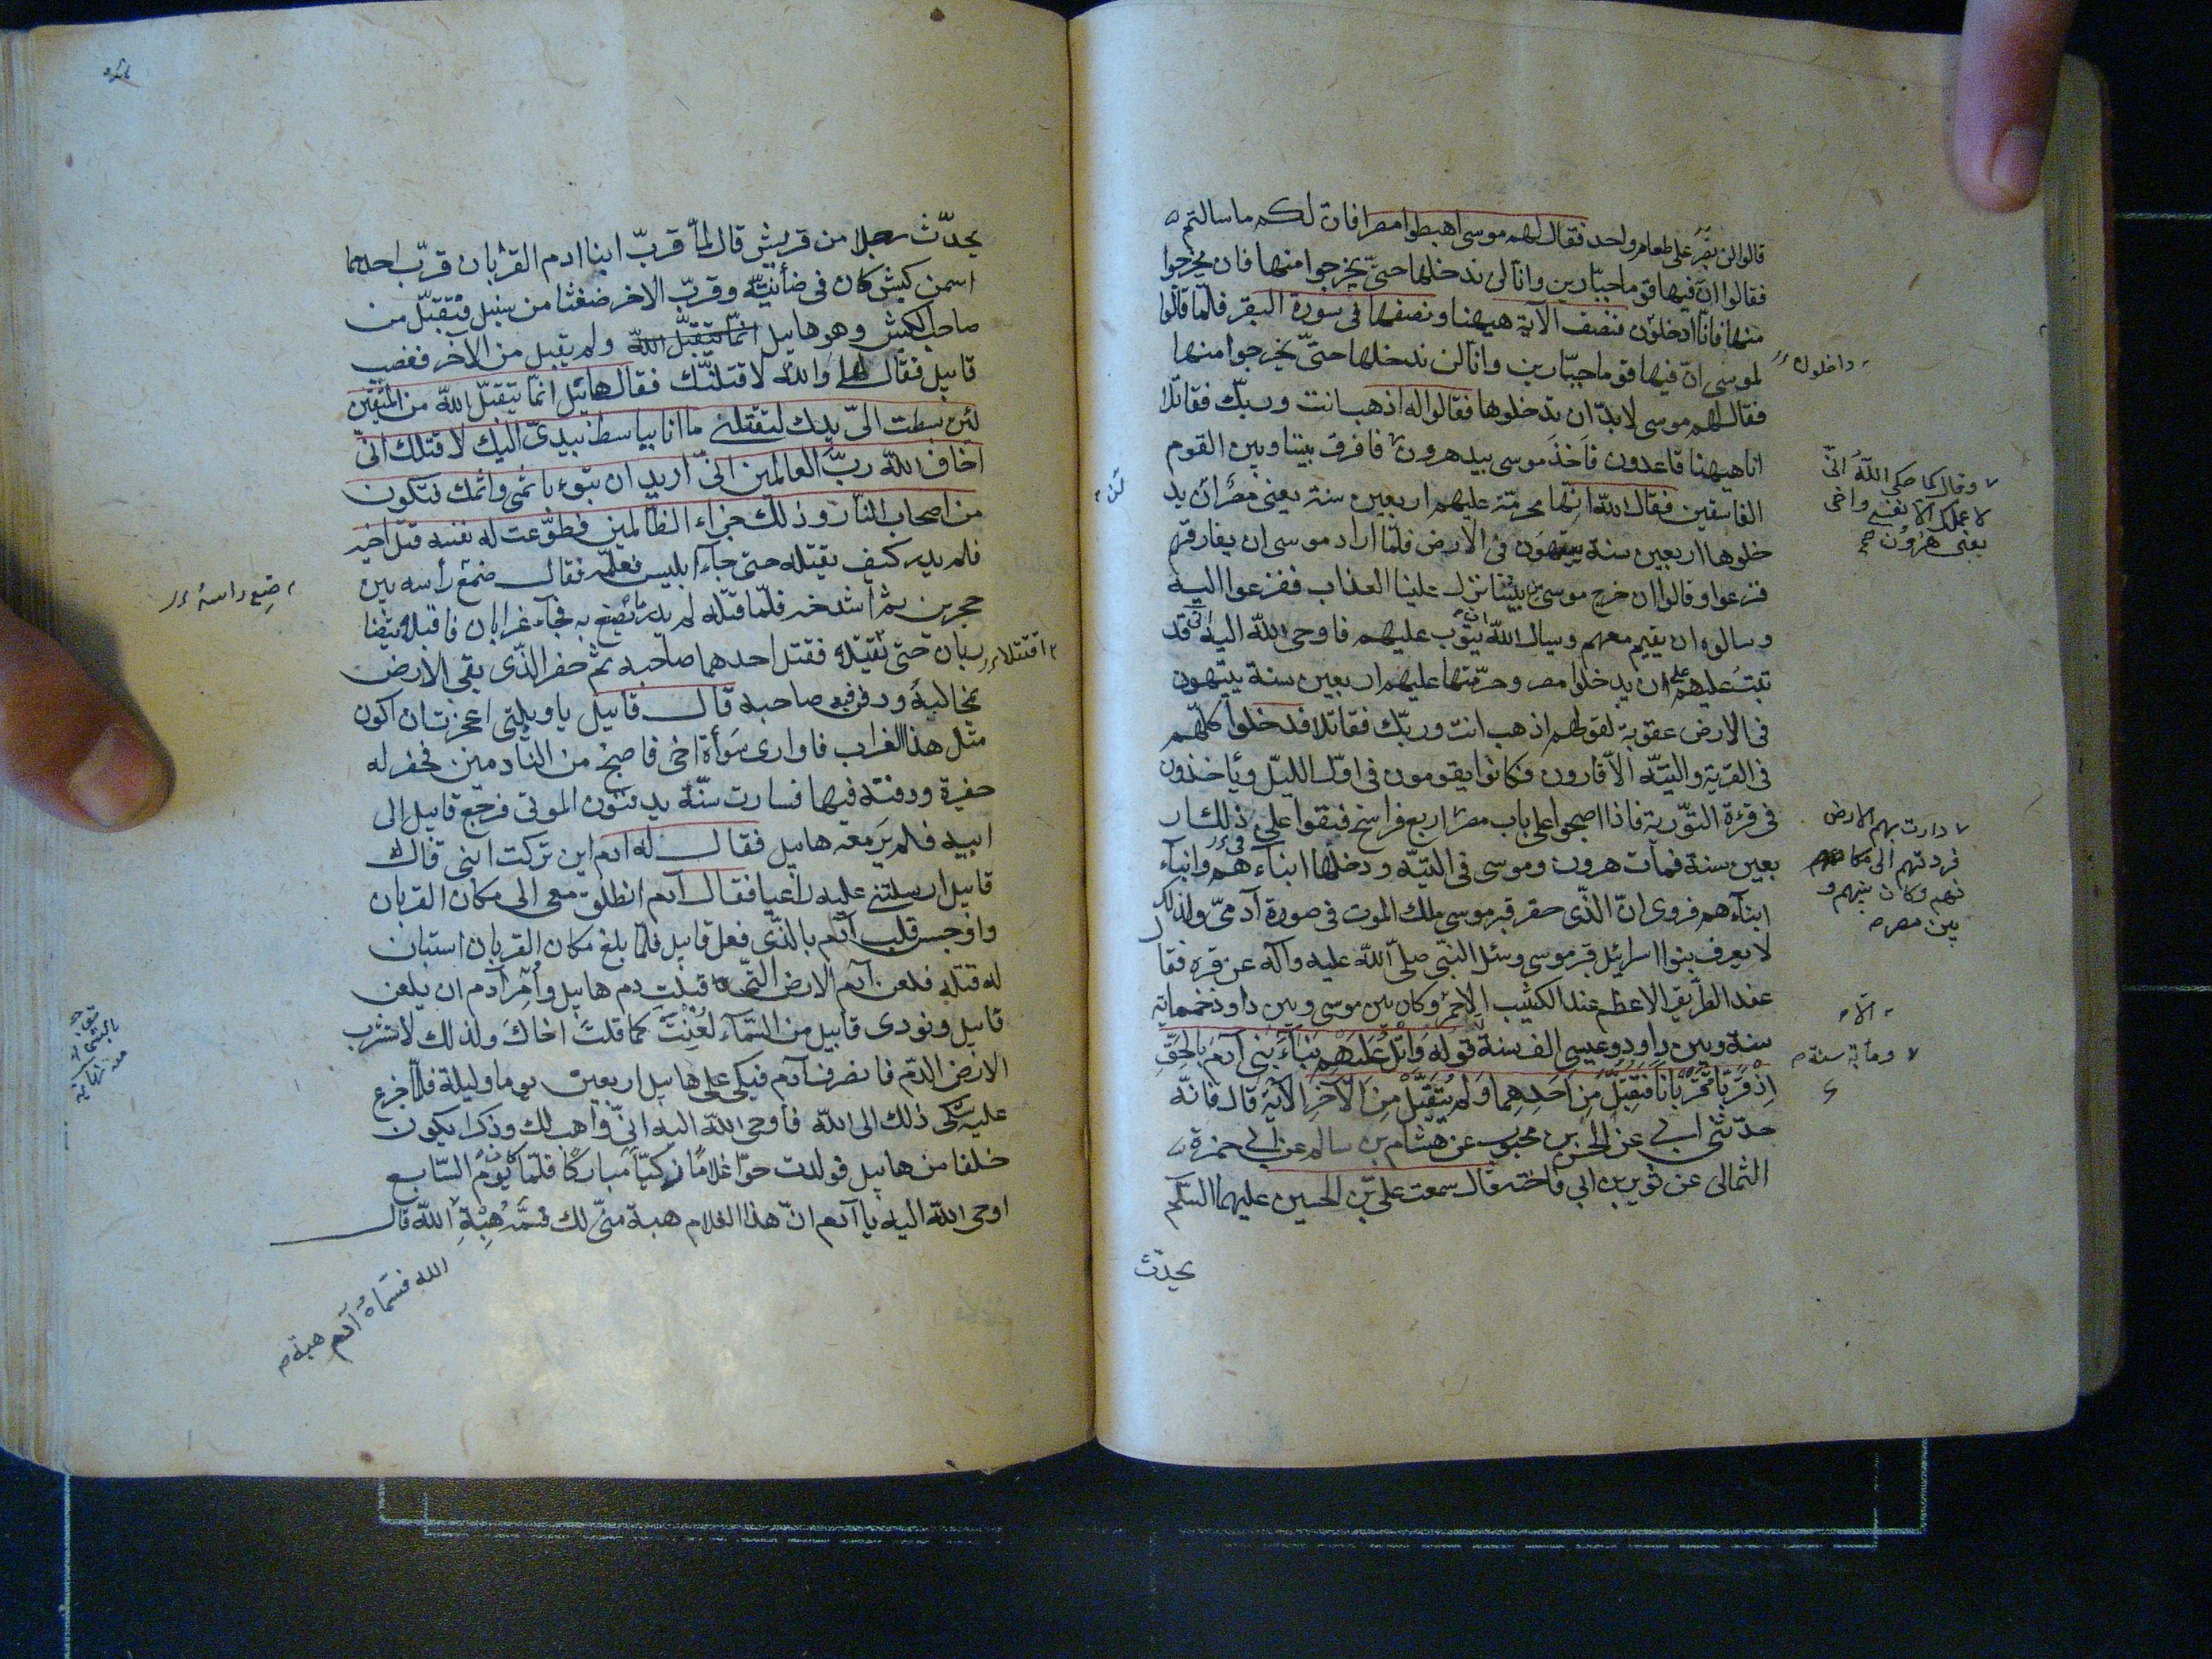 قالوا لن نصبر على طعام واحد فقال لهم موسى اهبطوا مصرا فان لكم ما سالتم
فقالوا ان فيها قوما جبّارين وانا لن ندخلها حتّى يخرجوا منها فان يخرجوا
منها فانا ادخلون فنصف الآية هيهنا ونصفها فى سورة البقر فلمّا قالوا
لموسى انّ فيها قوما جبّارين وانا لن ندخلها حتّى يخرجوا منها
داخلون
فقال لهم موسى لا بدّ ان تدخلوها فقالوا له اذهب انت وربّك فقاتلا
انا هيهنا قاعدون فاخذ موسى بيد هرون فافرق بيننا وبين القوم
وقال كما حكى اللّه انّى
لا املك الا نفسى واخى
يعنى هرون صح
الفاسقين فقال اللّه انّها محرمّة عليهم اربعين سنة يعنى مصر ان يد
خلوها اربعين سنة يتيهون فى الارض فلمّا اراد موسى ان يفارقهم
فزعوا وقالوا ان خرج موسى من بيننا نزل علينا العذاب ففزعوا اليه
وسالوه ان يقيم معهم ويسال اللّه ان يتوب عليهم فاوحى اللّه اليه انّى قد
تبت عليهم على ان يدخلوا مصر وحرّمتها عليهم اربعين سنة يتيهون
فى الارض عقوبة لقولهم اذهب انت وربّك فقاتلا فدخلوا كلّهم
فى القرية والتيّه الّا قارون فكانوا يقومون فى اوّل الليل ويأخذون
فى قرءة التّورية فاذا اصبحوا على باب مصر اربع فراسخ فبقوا على ذلك ار
دارت بهم الارض
فردتهم الى مكا
نهم وكان بينهم و
بين مصر
بعين سنة فمات هرون وموسى فى التيّه ودخلها ابناءهم وابناء
ابنآءهم فروى انّ الذّى حفر قبر موسى ملك الموت فى صورة آدمىّ ولذلك
لا يعرف بنوا اسرائيل قبر موسى وسئل النبّى صلّى اللّه عليه وآله عن قبره فقا
عند الطّريق الاعظم عند الكثيب الاحمر وكان بين موسى وبين داود خمسمائة
سنة وبين داود وعيسى الف سنة قوله وَاتْلُ عَلَيْهِمْ نَبَاءَ بَنِى آدَمَ بِالْحَقِّ
الاء
ومأية سنة
اِذْ قَرَّبَا قُرْبَانًا فَتُقُبِّلَ مِنْ اَحَدِهِمَا وَلَمْ يُتَقَبَّلْ مِنَ الْآخَرِ الآية قال فانّه
حدّثنى ابى عن الحسن بن محبوب عن هشام بن سالم عن ابى حمزة
الثمالى عن ثوير بن ابى فاخته قال سمعت علىّ بن الحسين عليهما السّلم
يحدّث
يحدّث رجلا من قريش قال لمّا قربّ ابنا ادم القربان قربّ احدهما
اسمن كبش كان فى ضأنيته وقربّ الآخر ضغثا من سنبل فتقبّل من
صاحب الكبش وهو هابيل انّما يتقبّل اللّه ولم يقبل من الآخر فغضب
قابيل فقال لهابيل واللّه لاقتلنّك فقال هابيل انّما يتقبّل اللّه من المتّقين
لئن بسطت الىّ يدك لتقتلنى ما انا بباسط يدى اليك لاقتلك انىّ
اخاف اللّه ربّ العالمين انىّ اريد ان تبوء باثمى واثمك فتكون
من اصحاب النّار وذلك جزاء الظّالمين فطوّعت له نفسه قتل اخيه
فلم يدر كيف يقتله حتى جاء ابليس فعلّمه فقال ضع رأسه بين
ضع راسه
حجرين ثم اشدخه فلمّا قتله لم يدر ما يصنع به فجآء غرابان فاقبلا يتضا
ربان حتّى تقتلا فقتل احدهما صاحبه ثم حفر الذّى بقى الارض
اقتتلا
بمخالبه ودفن فيه صاحبه قال قابيل ياويلتى اعجزت ان اكون
مثل هذا الغراب فاوارى سوأة اخى فاصبح من النادمين فحفر له
حفيرة ودفنه فيها فصارت سنّة يدفنون الموتى فرجع قابيل الى
ابيه فلم يرَ معه هابيل فقال له ادم اين تركت ابنى قال له
قابيل ارسلتنى عليه راعيا فقال آدم انطلق معى الى مكان القربان
واوجس قلب آدم بالذّى فعل قابيل فلمّا بلغ مكان القربان استبان
له قتله فلعن آدم الارض التّى قبلت دم هابيل وأمر آدم ان يلعن
قابيل ونودى قابيل من السّمآء لُعِنْتَ كما قتلت اخاك ولذلك لا تشرب
الارض الدّم فانصرف آدم فبكى على هابيل اربعين يوما وليلة فلمّا جزع
عليه شكى ذلك الى اللّه فاوحى اللّه اليه انىّ واهب لك ذكرا يكون
خلفا من هابيل فولدت حوّا غلامًا زكيّا مباركًا فلمّا كان يوم السّابع
اوحى اللّه اليه يا آدم انّ هذا الغلام هبة منىّ لك فسمّه هِبةَ اللّه قال
اللّه فسمّاه آدم هبة